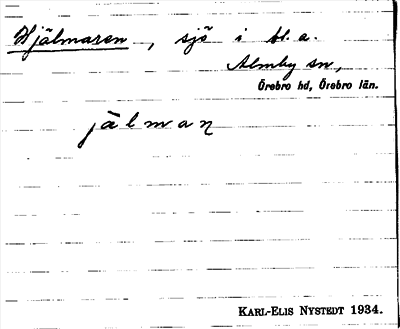 Hjälmaren, sjö i bl.a.
Almby sn,
Örebro hd, Örebro län.
jälman
KARL-ELIS NYSTEDT 1934.